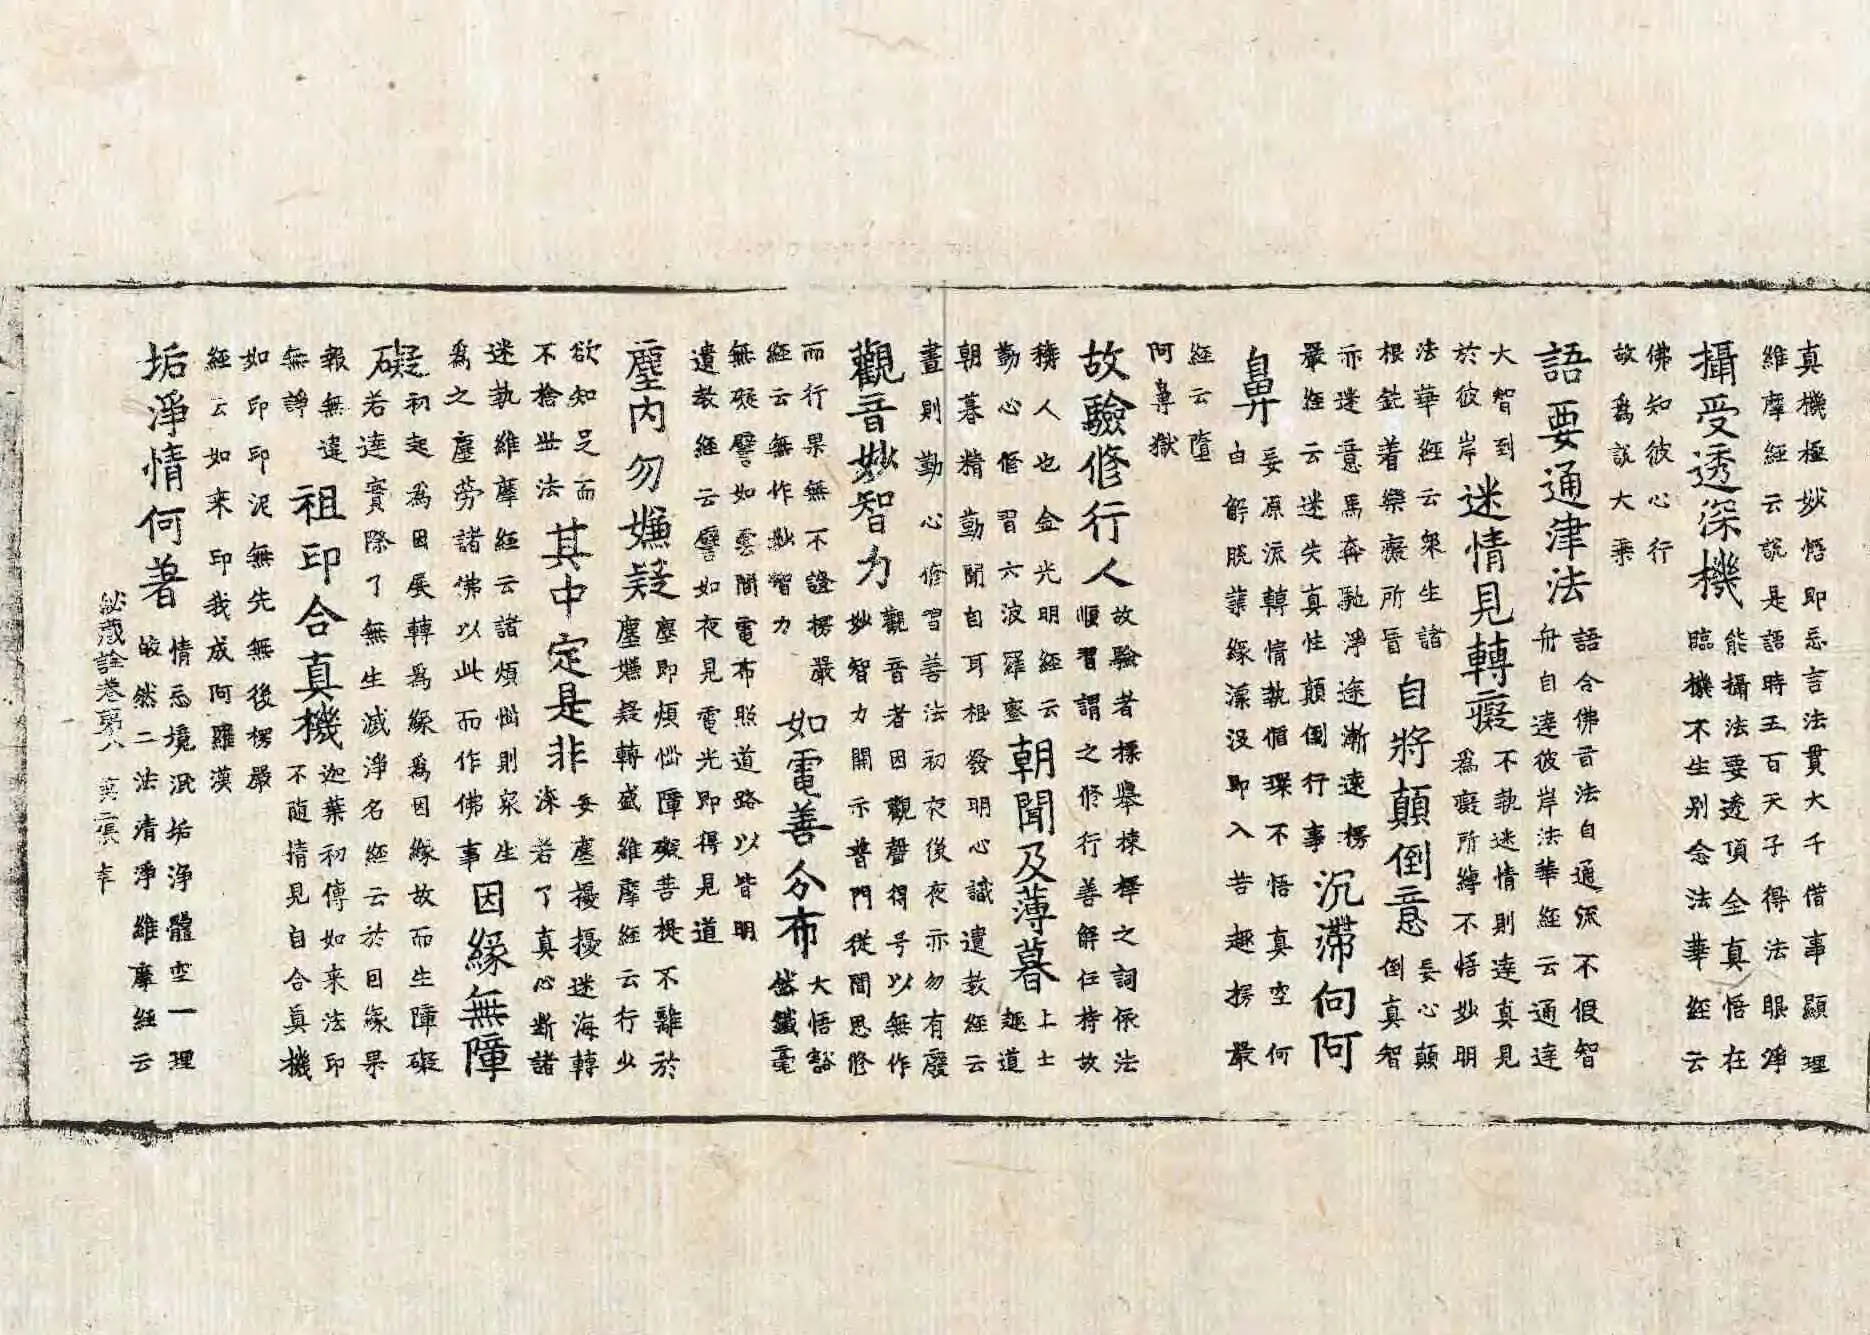 真機極妙悟即忘言法貫大千借事顯理
維摩經云說是語時五百天子得法眼淨
攝受透深機
能攝法要透頂全真悟在
臨機不生別念法華經云
佛知彼心行
故為說大乘
語要通津法
語合佛音法自通流不假智
舟自達彼岸法華經云通達
大智到
於彼岸
迷情見轉癡
不執迷情則達真見
為癡所縛不悟妙明
法華經云衆生諸
根鈍着樂癡所盲
自將顛倒意
妄心顛
倒真智
亦迷意馬奔馳淨途漸遠楞
嚴經云迷失真性顛倒行事
沉滯向阿
鼻
妄原流轉情執循環不悟真空何
白解脫業緣深沒即入苦趣楞嚴
經云墮
阿鼻獄
故驗修行人
故驗者採舉揀擇之詞依法
順習謂之修行善解任持故
稱人也金光明經云
勤心修習六波羅蜜
朝聞及薄暮
上士
趣道
朝暮精勤聞自耳根發明心識遺教經云
晝則勤心修習善法初夜後夜亦勿有廢
觀音妙智力
觀音者因觀聲得号以無作
妙智力開示普門從聞思修
而行果無不證楞嚴
經云無作妙智力
如電善分布
大悟豁
然纖毫
無礙譬如雲間電布照道路以皆明
遺教經云譬如夜見電光即得見道
塵內勿嫌疑
塵即煩惱障礙菩提不離於
塵嫌疑轉盛維摩經云行少
欲知足而
不捨此法
其中定是非
妄塵擾擾迷海轉
深若了真心斷諸
迷執維摩經云諸煩惱則衆生
為之塵勞諸佛以此而作佛事
因緣無障
礙
初起為因展轉為緣為因緣故而生障礙
若達實際了無生滅淨名經云於因緣果
報無違
無諍
祖印合真機
迦葉初傳如来法印
不随情見自合真機
如印印泥無先無後楞嚴
經云如来印我成阿羅漢
垢淨情何著
情忘境泯垢淨體空一理
皎然二法清淨維摩經云
秘蔵詮卷第八 第二張 幸